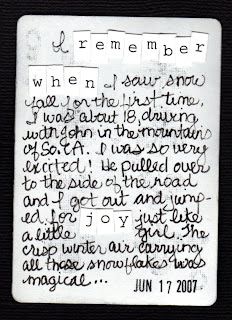 I remember
when I saw snow
fall for the first time.
I was about 18, driving
with John in the mountains
of So. CA. I was so very
excited! He pulled over
to the side of the road
and I got out and jump-
ed for joy just like
a little girl. The
crisp winter air carrying
all those snowflakes was
magical...
JUN 17 2007